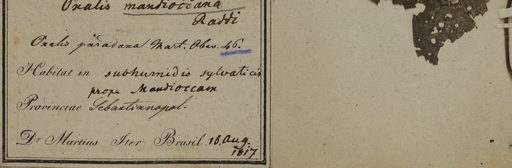 Oxalis mandioccana
Raddi
Oxalis paradana Mart. Obs. 46.
Habitat in subhumidis sylvaticis
prope Mandioccam
Provinciae Sebastianopol.
Dr Martius Iter Brasil. 16. Aug.
1817